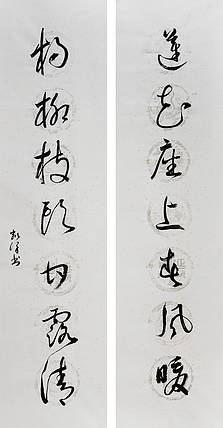 蓮花座上春風暖
楊柳枝頭甘露清